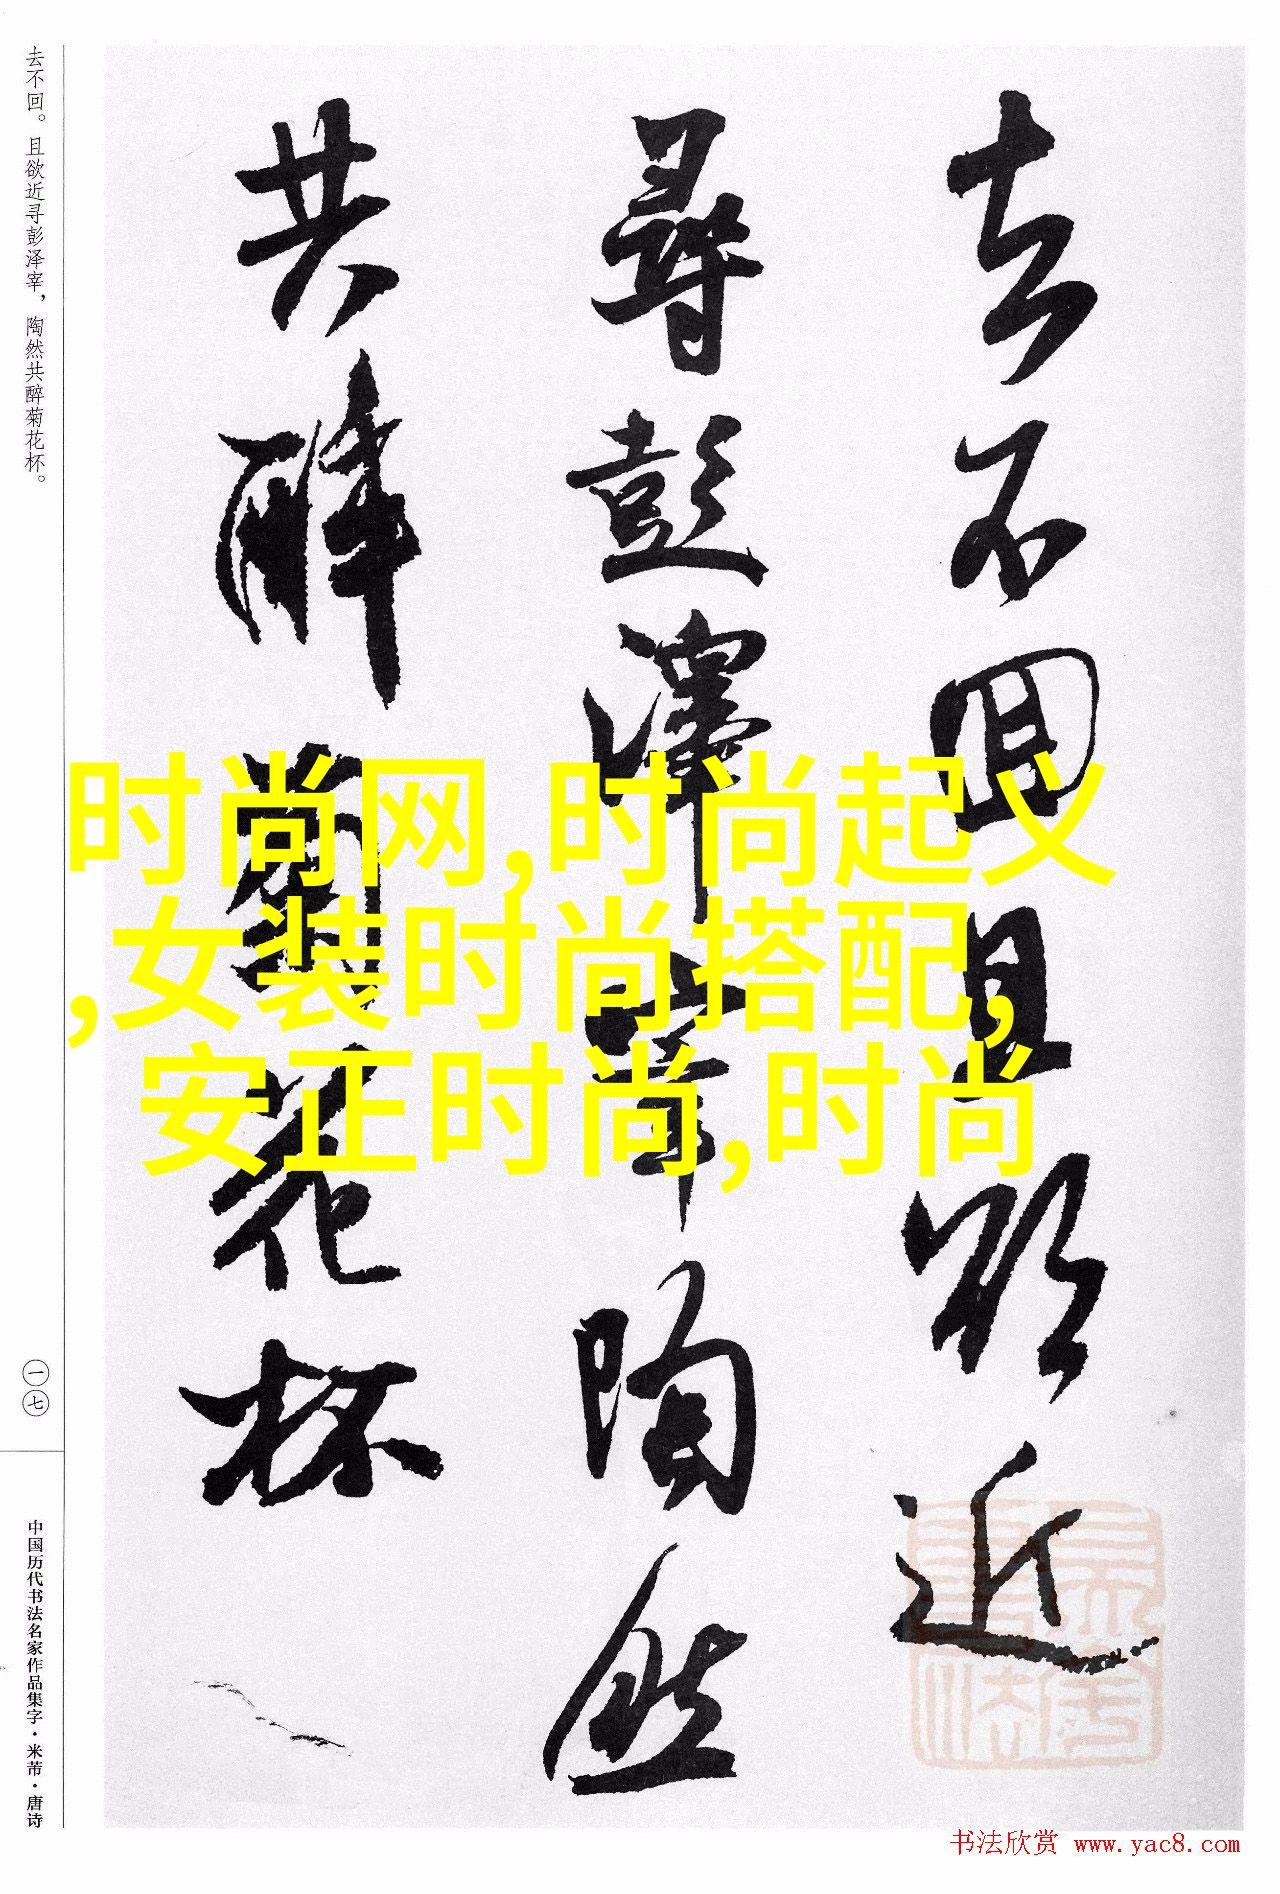 去不回且欲近
尋彭澤宰陶然
共醉菊花杯
去不回。且欲近寻彭泽宰，陶然共醉菊花杯。
一七
中国历代书法名家作品集字·米芾·唐诗
时尚网,时尚起义
,女装时尚搭配,
安正时尚,时尚
书法欣赏 www.yac8.com